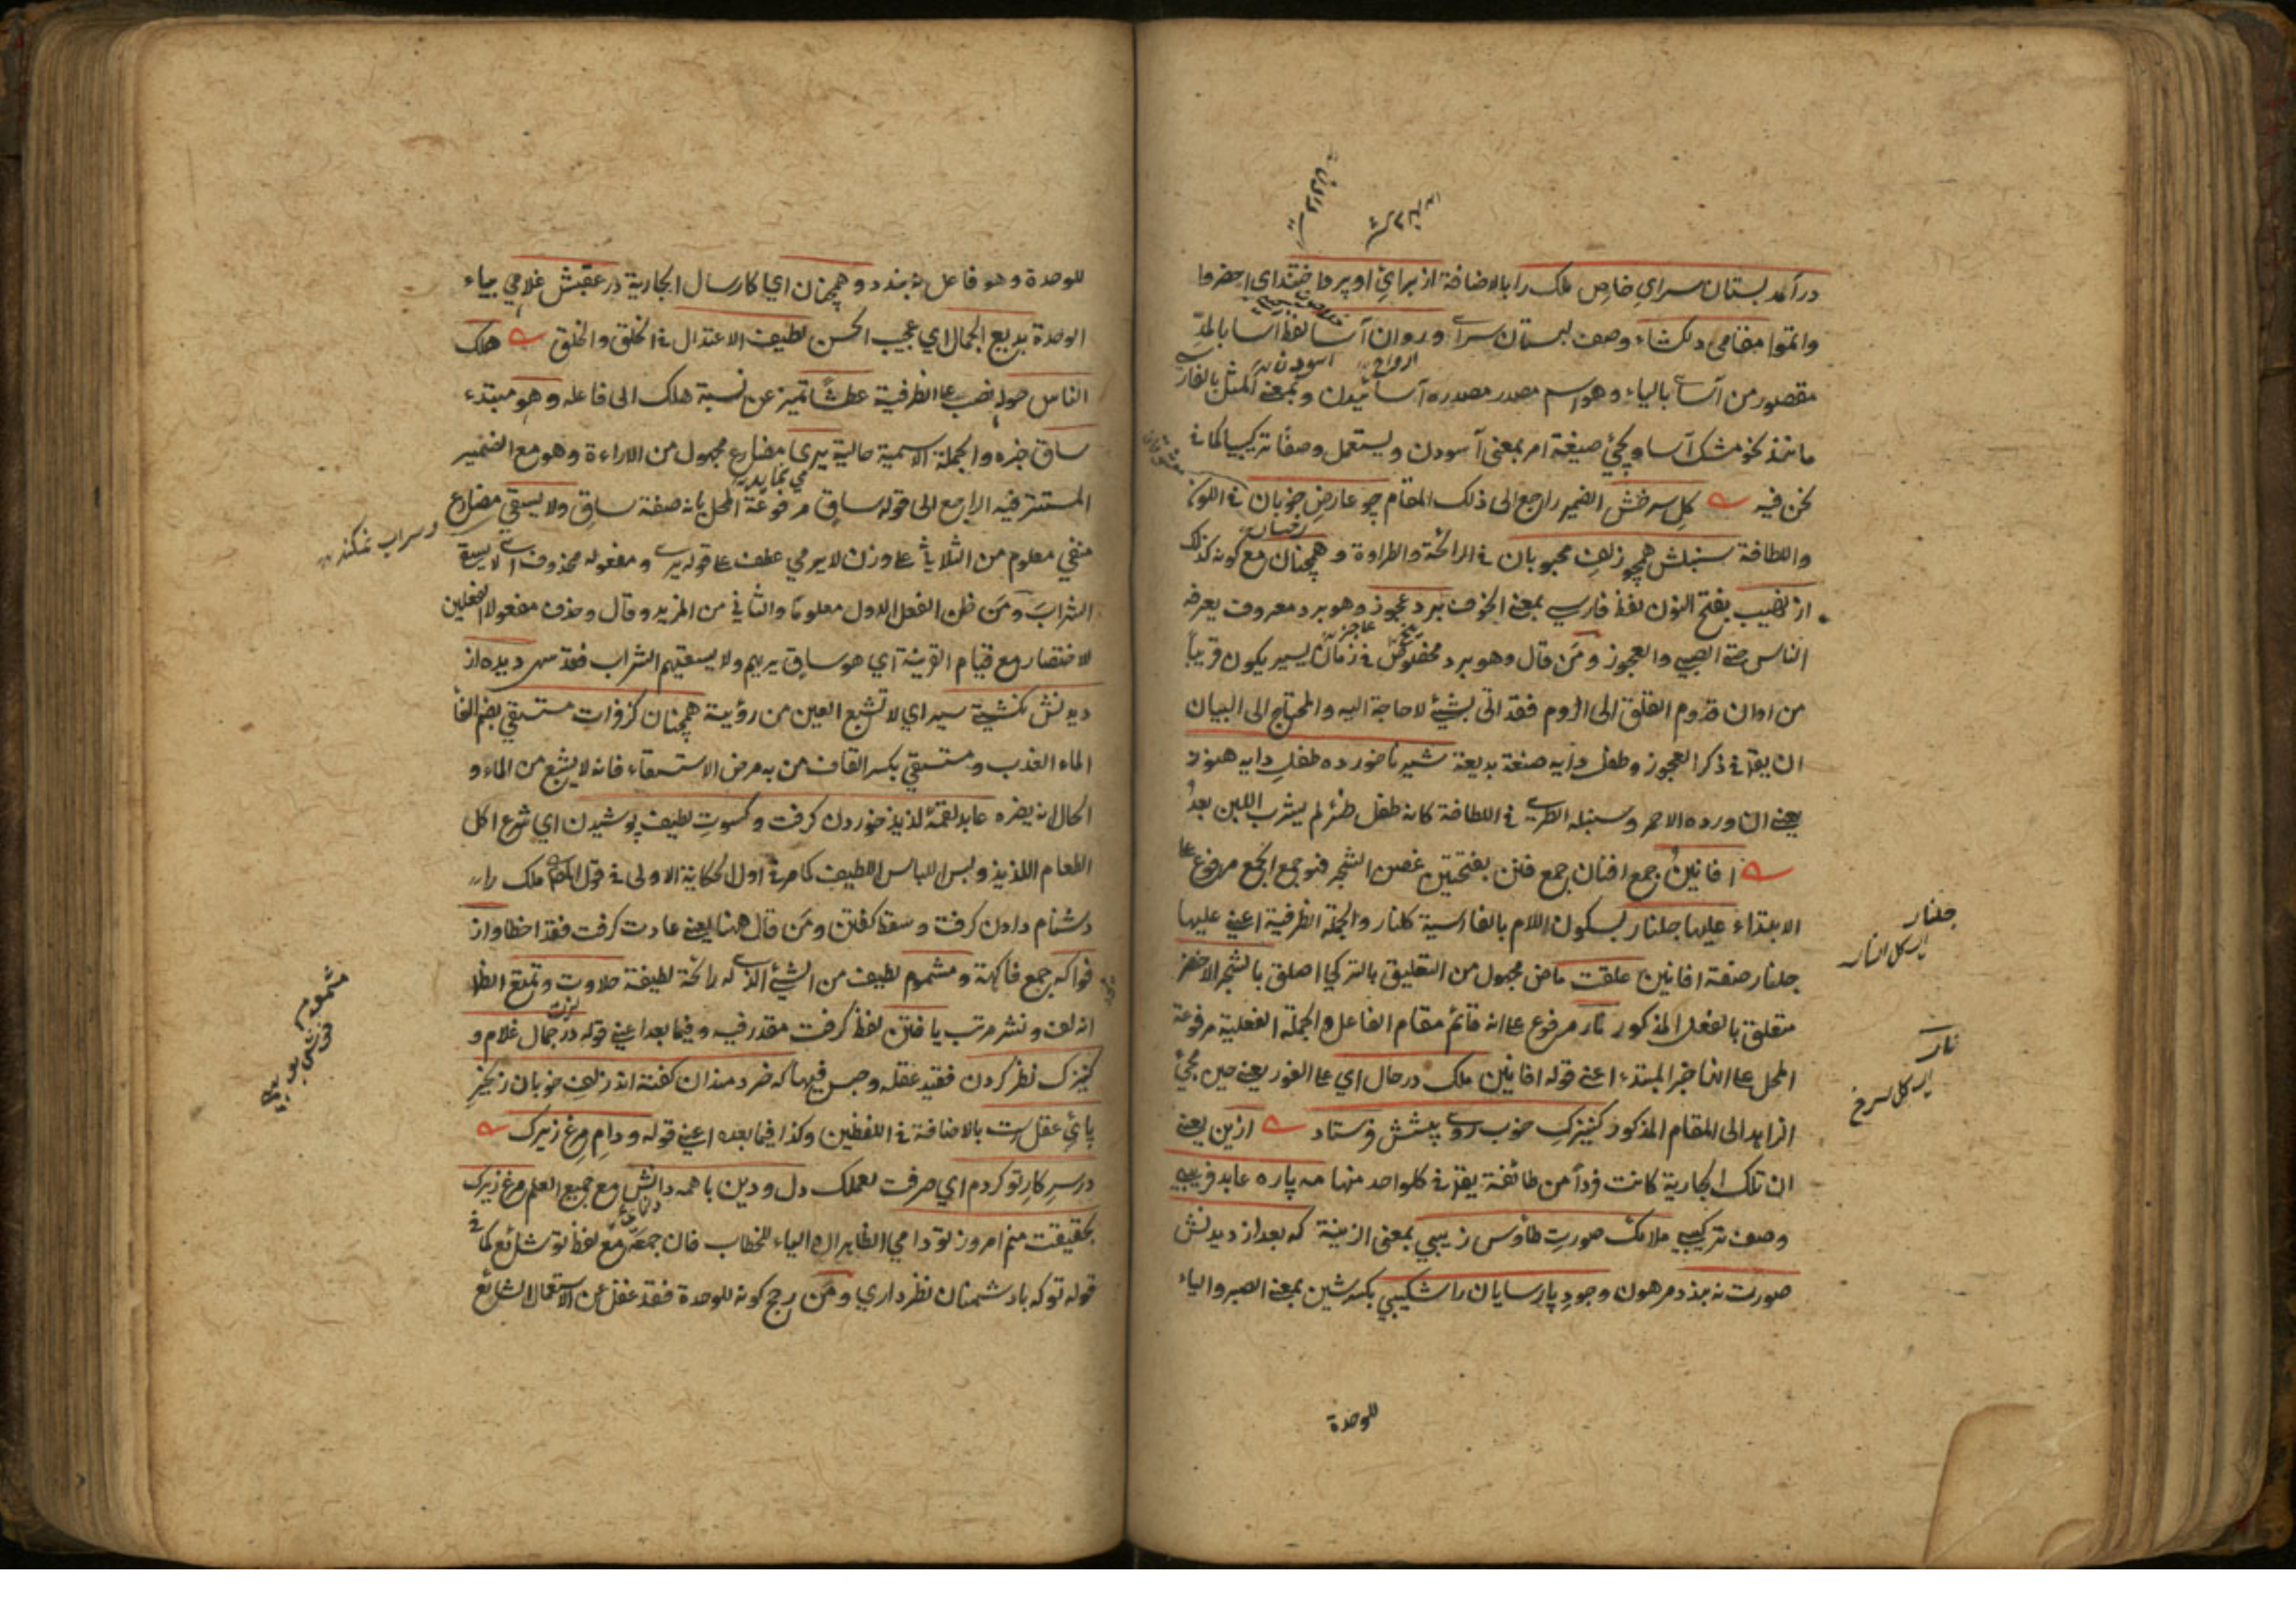 درآمد بستان سراي خاص ملك را بالاضافة از براي او پرداختند اي احضروا
واتموا مقامى دلكشاء وصف لبستان سرا وروان آسا لفظ آسا بالمدّ
مقصور من آساى بالياء وهو اسم مصدر مصدره آسائيدن وبمعنى المثل بالفارسي
مانند نحو مشك آسا ويجئ صيغة امر بمعنى آسودن ويستعمل وصفا تركيبيا كما في
نحن فيه كل سرخش الضمير راجع الى ذلك المقام چو عارض خوبان في اللون
واللطافة سنبلش همچو زلف محبوبان في الرائحة والطراوة وهمچنان مع كونه كذلك
از نهيب بفتح النون لفظ فارسي بمعنى الخوف برد عجوز وهو برد معروف يعرفه
الناس حتى الصبي والعجوز ومن قال وهو برد مخصوص في زمان يسير يكون قريباً
من اوان قدوم اللقلق الى الروم فقد اتى بشئ لا حاجة اليه والمحتاج الى البيان
ان يقرأ في ذكر العجوز وطفل دايه صنعة بديعة شير ناخورده طفل دايه هنوز
يعنى ان ورده الاحمر وسنبله الطري في اللطافة كانه طفل ظئر لم يشرب اللبن بعدُ
افانينُ جمع افنان جمع فنن بفتحتين غصن الشجر فهو جمع الجمع مرفوع على
الابتداء عليها جلنار بسكون اللام بالفارسية كلنار والجملة الظرفية اعني عليها
جلنار صفة افانين علقت ماض مجهول من التعليق بالتركي اصلق بالشجر الاخضر
متعلق بالفعل المذكور نار مرفوع على انه قائم مقام الفاعل والجملة الفعلية مرفوعة
المحل على انها خبر المبتدء اعنى قوله افانين ملك درحال اي على الفور يعنى حين مجئ
الزاهد الى المقام المذكور كنيزك خوب روى پيشش فرستاد ازين يعنى
ان تلك الجارية كانت فرداً من طائفة يقال في كل واحد منها مه پاره عابد فريبى
وصف تركيبى ملائك صورت طاوس زيبي بمعنى الزينة كه بعد از ديدنش
صورت نه بندد مرهون وجود پارسايان را شكيبي بكسر شين بمعنى الصبر والياء
للوحدة
جلنار
اى كل النار
نار
اى كل سرخ
للوحدة وهو فاعل نه بندد وهمچنان اي كارسال الجارية در عقبش غلامي بياء
الوحدة بديع الجمال اي عجيب الحسن لطيف الاعتدال في الخلق والخلق هلك
الناس حوله نصب على الظرفية عطشاً تميز عن نسبة هلك الى فاعله وهو مبتدء
ساق خبره والجملة الاسمية حالية يرى مضارع مجهول من الاراءة وهو مع الضمير
المستتر فيه الراجع الى قوله ساق مرفوعة المحل بانه صفة ساق ولا يسقي مضارع
منفي معلوم من الثلاثي على وزن لا يرمي عطف على قوله يرى ومفعوله محذوف اى لا يسقى
الشراب ومن ظن الفعل الاول معلوماً والثاني من المزيد وقال وحذف مفعولا الفعلين
للاختصار مع قيام القرينة اي هو ساق يريهم ولا يسقيهم الشراب فقد سهى ديده از
ديدنش نكشتى سير اي لا تشبع العين من رؤيته همچنان كز فرات مستسقي بضم الفا
الماء العذب ومستسقي بكسر القاف من به مرض الاستسقاء فانه لا يشبع من الماء و
الحال انه يضره عابد لقمهٔ لذيذ خوردن كرفت وكسوت لطيف پوشيدن اي شرع اكل
الطعام اللذيذ ولبس اللباس اللطيف كما مر في اول الحكاية الاولى في قول المص ملك را
دشنام دادن كرفت وسقط كفتن ومن قال ههنا يعنى عادت كرفت فقد اخطا واز
فواكه جمع فاكهة ومشموم لطيف من الشئ الذى له رائحة لطيفة حلاوت وتمتع الظا
انه لف ونشر مرتب يافتن لفظ كرفت مقدر فيه وفيما بعد اعنى قوله در جمال غلام و
كنيزك نظر كردن فقيد عقله وحبس فيها كه خردمندان كفته اند زلف خوبان زنجير
پاي عقلست بالاضافة في اللفظين وكذا فيما بعده اعنى قوله ودام مرغ زيرك
در سر كار تو كردم اي صرفت لعملك دل ودين با همه دانش مع جميع العلم مرغ زيرك
بحقيقت منم امروز تو دامي الظاهر ان الياء للخطاب فان جمعه مع لفظ تو شائع كما في
قوله تو كه با دشمنان نظر داري ومن رجح كونه للوحدة فقد غفل عن الاستعمال الشائع
وسراب نمكند
مشموم